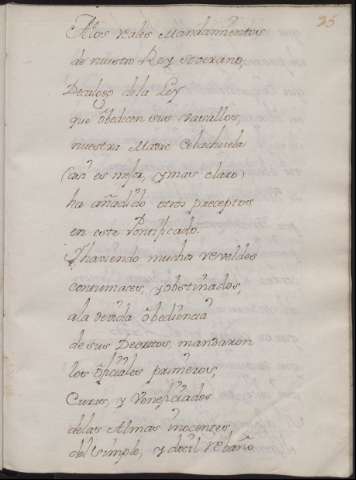 95
A los reales Mandamientos
de nuestro Rey soverano,
Decalogo de la Ley
que obedecen sus vasallos,
nuestra Madre
(asi es nrâ, y mas claro)
ha añadido otros preceptos
en este Pontificado.
Y haviendo muchos reveldes
contumaces, y obstinados,
a la devida obediencia
de sus Decretos, mandaron
los oficiales primeros,
Curas, y Veneficiados
de las Almas inocentes,
del simple, y docil rebaño